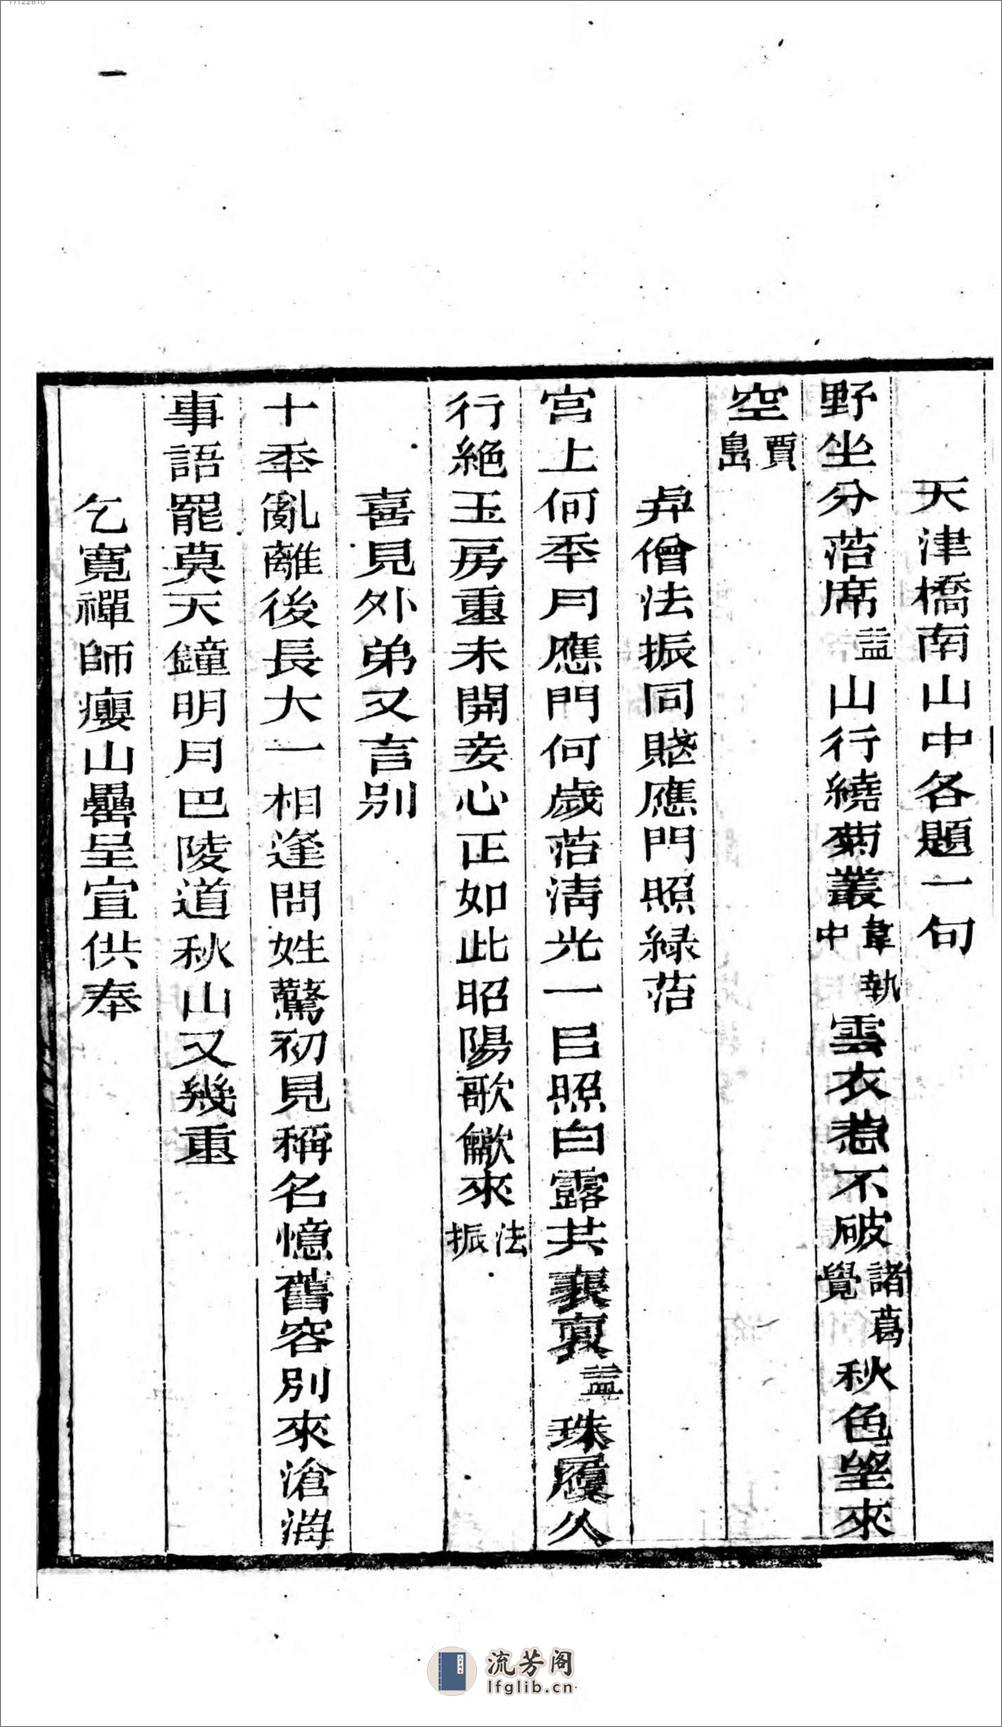 天津橋南山中各題一句
野坐分苔席益山行繞菊叢韋執中雲衣惹不破諸葛覺秋色望來
空賈島
與僧法振同賤應門照綠苔
宮上何年月應門何歲苔清光一以照白露共裵哀益珠履久
行絕玉房重未開妾心正如此昭陽歌歙來法振
喜見外弟又言別
十年亂離後長大一相逢問姓驚初見稱名憶舊容別來滄海
事語罷莫天鐘明月巴陵道秋山又幾重
乞寬禪師癭山罍呈宣供奉
流芳阁
lfglib.cn